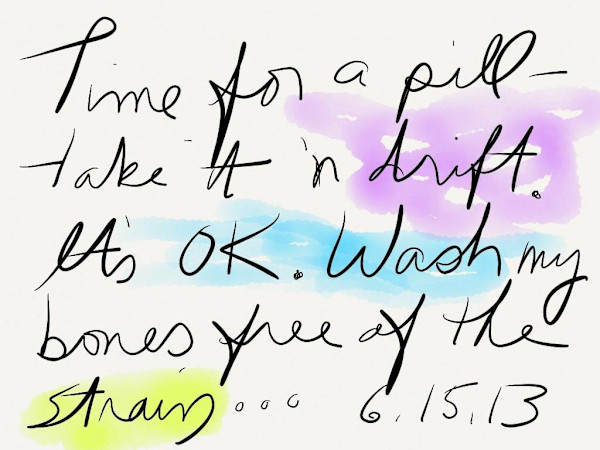 Time for a pill-
take it 'n drift.
It's OK. Wash my
bones free of the
strain... 6.15.13